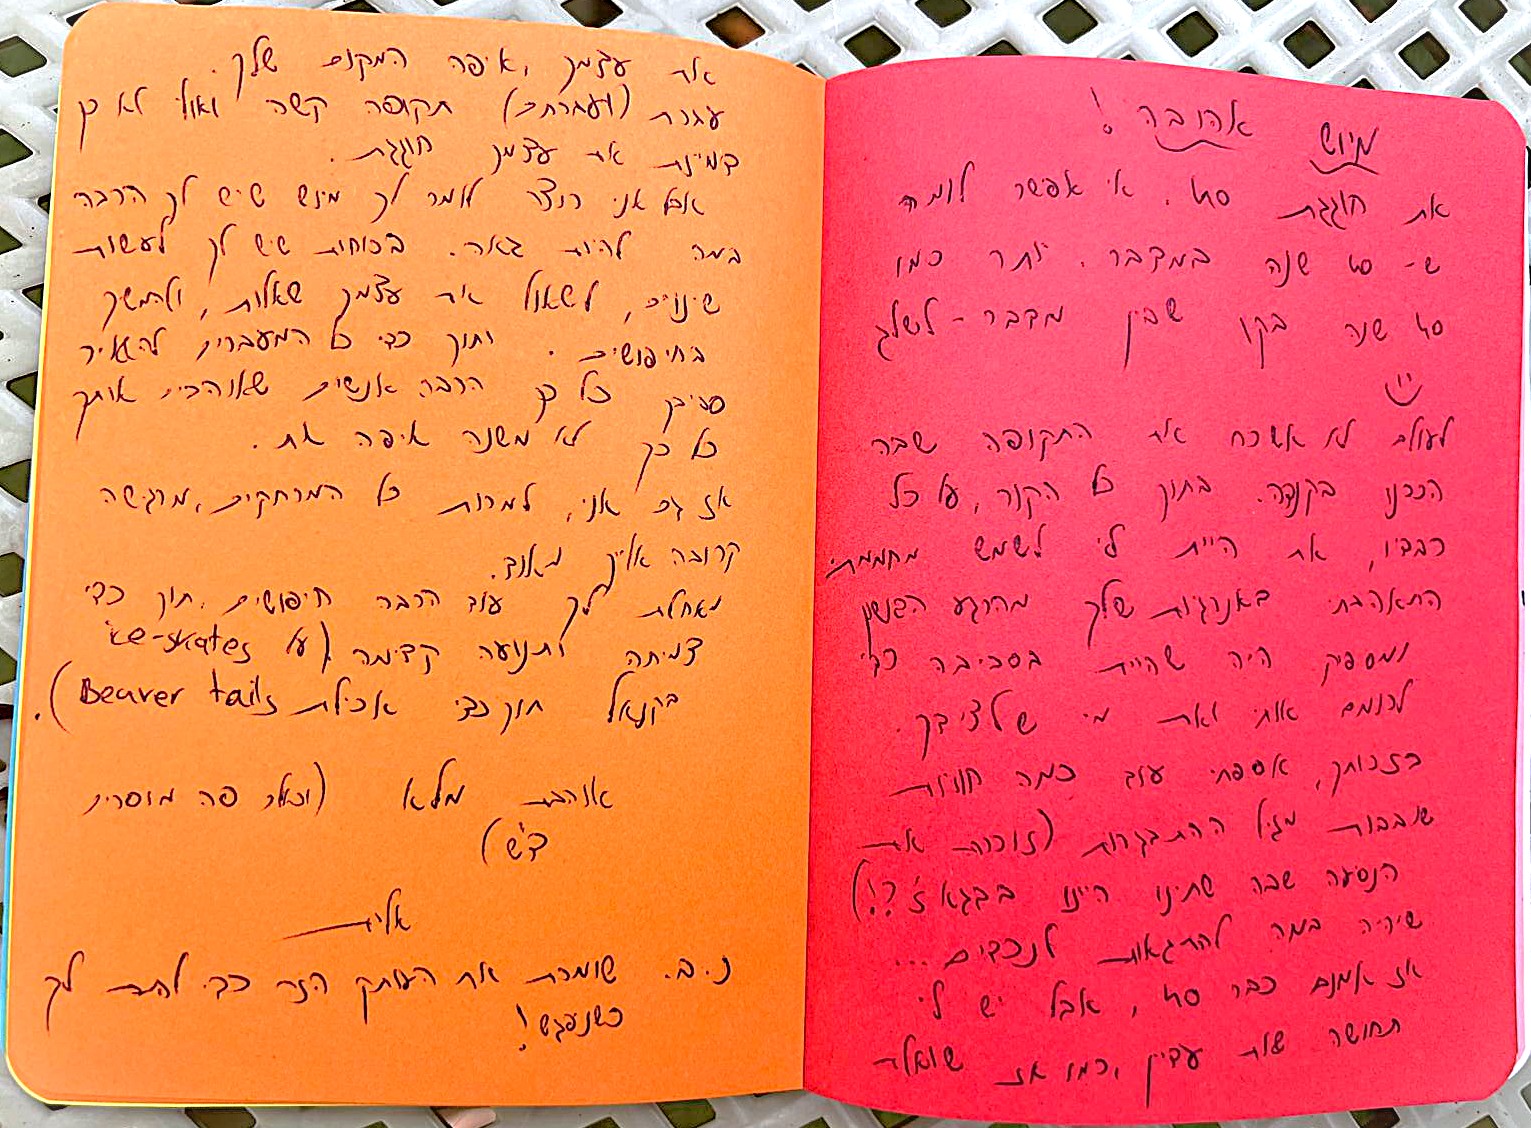 מיוש אהובה!
את חוגגת 40. אי אפשר לומר
ש- 40 שנה במדבר. יותר כמו
40 שנה בקו שבין מדבר - לשלג
לעולם לא אשכח את התקופה שבה
הכרנו בקנדה. בתוך כל הקור, על כל
רבדיו, את היית לי לשמש מחממת.
התאהבתי באנרגיות שלך מהרגע הראשון
ומספיק היה שהיית בסביבה כדי
לחמם אותי ואת מי שלצידך.
בזכותך, אספתי עוד כמה חוויות
שובבות מגיל ההתבגרות (זוכרת את
הנסיעה שבה שתינו היינו בבגאז'?!)
שיהיה במה להתגאות לנכדים...
אז אמנם כבר 40, אבל יש לי
תחושה שאת עדיין, כמו אז שואלת
את עצמך, איפה המקום שלך.
עברת (ועברתם) תקופה קשה ואולי לא כך
דמיינת את עצמך חוגגת.
אבל אני רוצה לומר לך מיוש שיש לך הרבה
במה להיות גאה. בכוחות שיש לך לעשות
שינויים, לשאול את עצמך שאלות, ולהמשיך
בחיפושים. ותוך כדי כל המעברים להשאיר
סביבך כל כך הרבה אנשים שאוהבים אותך
כל כך לא משנה איפה את.
אז גם אני, למרות כל המרחקים, מרגישה
קרובה אלייך מאוד.
מאחלת לך עוד הרבה חיפושים תוך כדי
צמיחה ותנועה קדימה (על ice-skates
בקנאל תוך כדי אכילת Beaver tails).
אוהבת מלא (וכולם פה מוסרים
ד"ש)
אלית
נ.ב. שומרת את העותק הזה כדי לתת לך
כשנפגש!